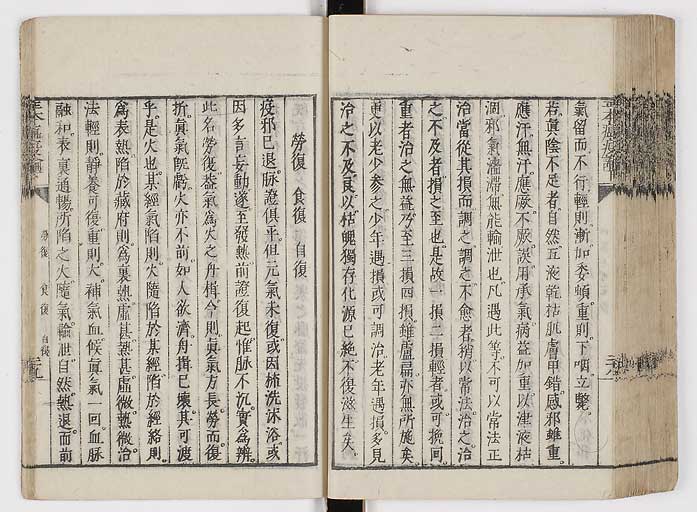 氣留而不行輕則漸加委頓重則下咽立斃
若眞陰不足者自然五液乾枯肌膚甲錯感邪雖重
應汗無汗應厥不厥誤用承氣病益加重以津液枯
涸邪氣濇滯無能輸泄也凡遇此等不可以常法正
治當從其損而調之調之不愈者稍以常法治之治
之不及者損之至也是故一損二損輕者或可挽回
重者治之無益乃至三損四損雖盧扁亦無所施矣
更以老少參之少年遇損或可調治老年遇損多見
治之不及良以枯魄獨存化源已絶不復滋生矣
勞復 食復 自復
疫邪已退脉證俱平但元氣未復或因梳洗沐浴或
因多言妄動遂至發熱前證復起惟脉不沉實爲辨
此名勞復葢氣爲火之舟楫今則眞氣方長勞而復
折眞氣旣虧火亦不前如人欲濟舟楫已壞其可渡
乎是火也某經氣陷則火隨陷於某經陷於經絡則
爲表熱陷於藏府則爲裏熱虛甚熱甚虛微熱微治
法輕則靜養可復重則大補氣血候眞氣一回血脉
融和表裏通暢所陷之火隨氣輸泄自然熱退而前
勞復 食復 自復